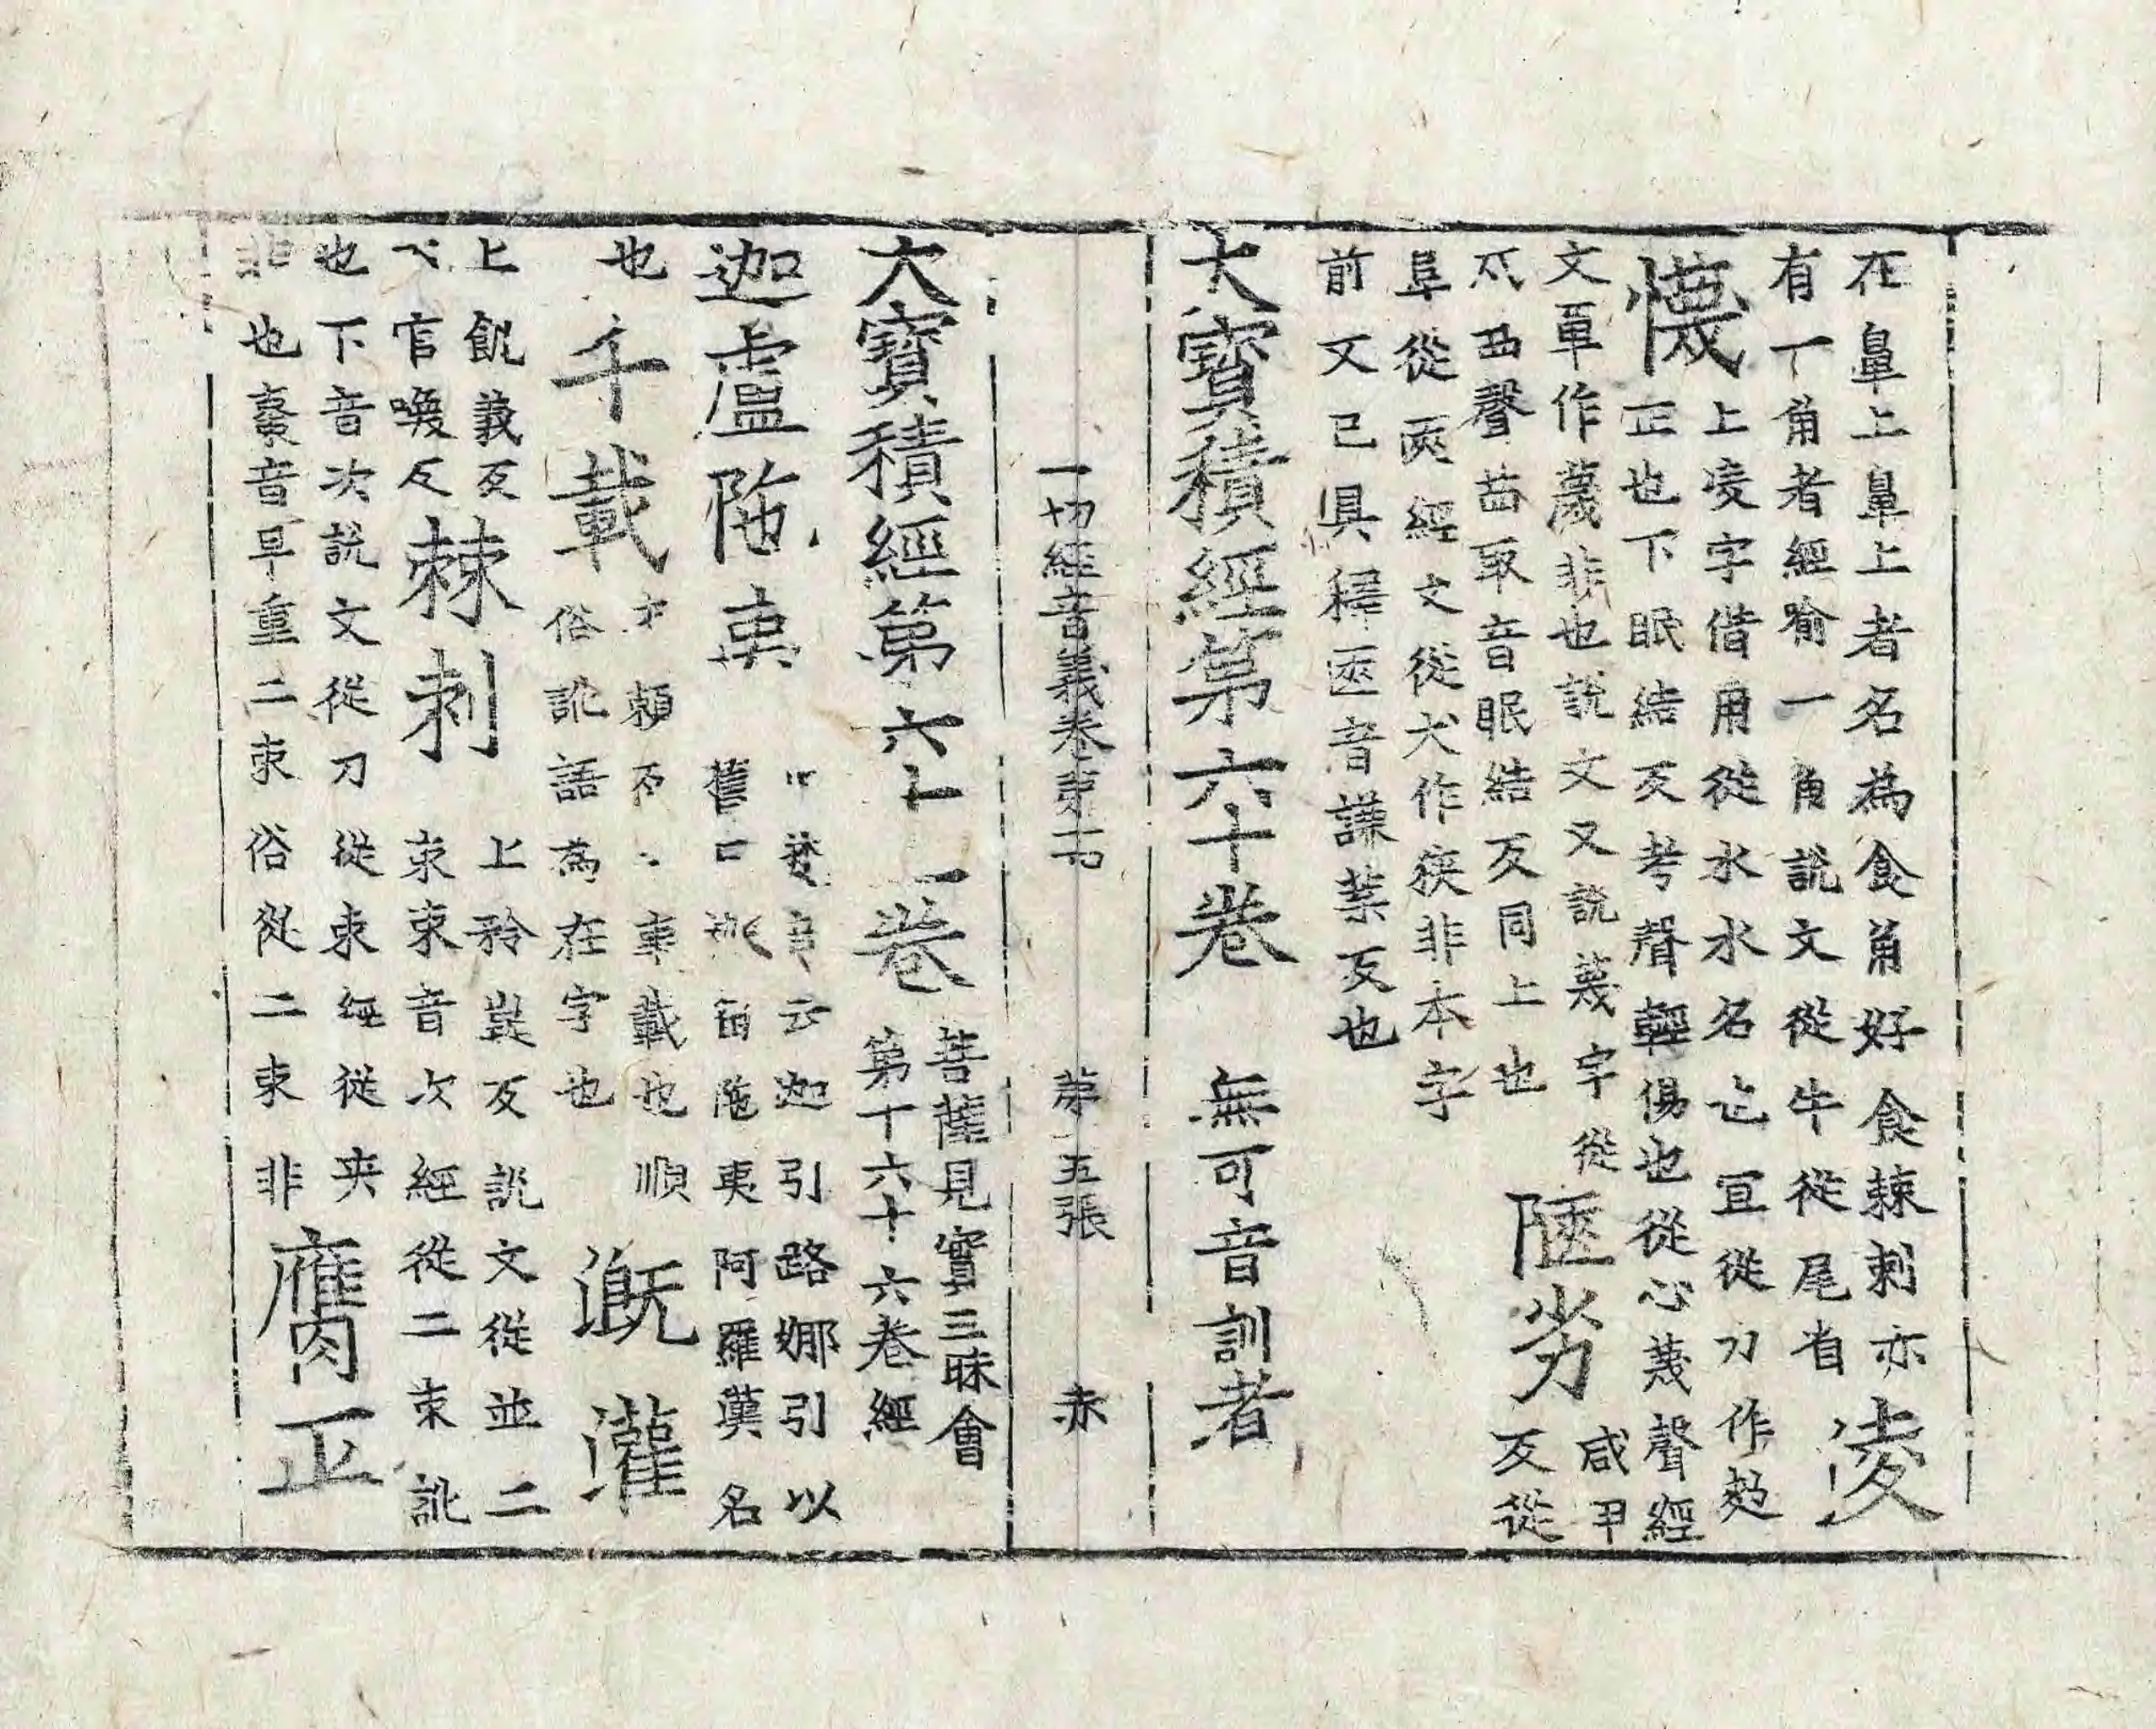 在鼻上鼻上者名為食角好食棘刺亦
有一角者經喻一角說文從牛從尾省 淩
懱 上淩字借用從水水水名也宜從力作
正也下眠結反考聲輕傷也從心蔑聲經
文單作蔑非也說文又說蔑字從
苜聲苜取音眠結反同上也 陿劣 咸甲
反從
阜從匧經文從犬作狹非本字
前文已具釋匧音謙葉反也
大寶積經第六十卷 無可音訓者
一切經音義卷第 第五張 赤
大寶積經第六十一卷 菩薩見實三昧會
第十六十六卷經
迦盧陁夷 梵音云迦引路娜引以
舊曰 留陁夷阿羅漢名
也 千載 載也順
俗訛語為在字也 溉灌
上飢義反
官喚反 棘刺 上矜 反說文從並二
朿朿音次經從二束訛
也下音次說文從刀從朿經從夾
非也棗音早重二朿俗從二束非 膺正